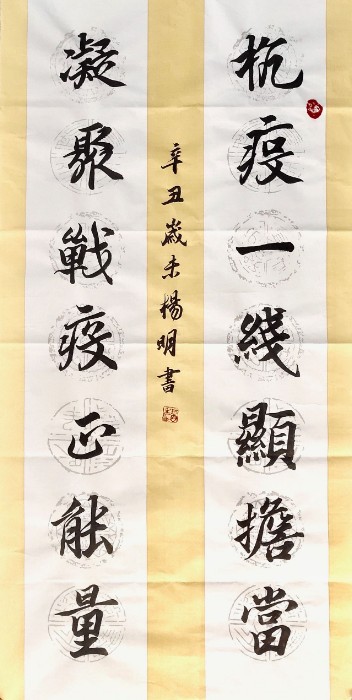 抗疫一綫顯擔當
凝聚戰疫正能量
辛丑歲末楊明書